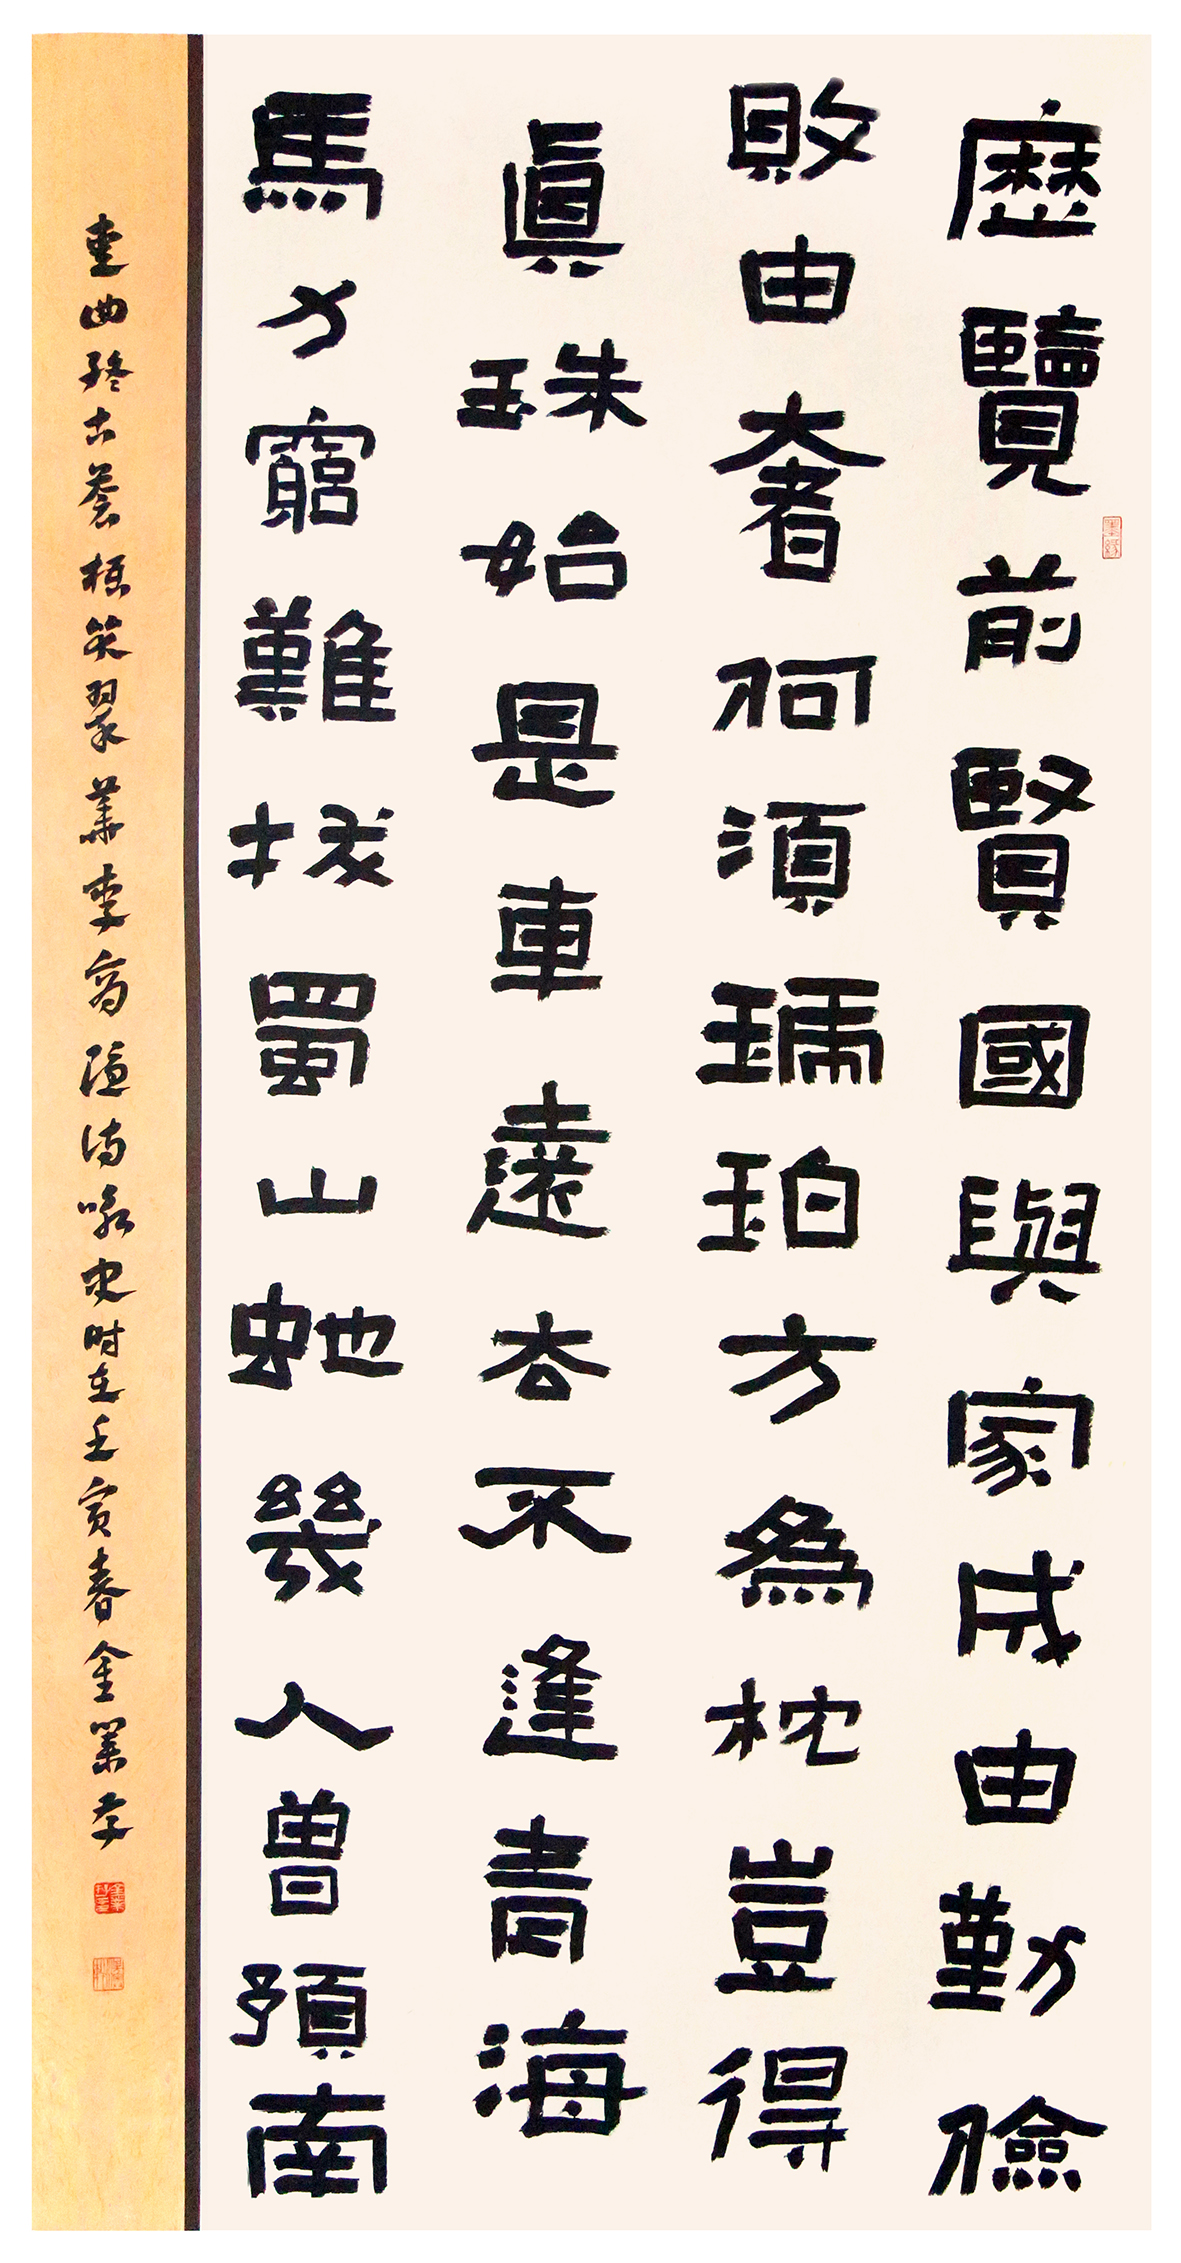 歷覽前賢國與家成由勤儉
敗由奢何須琥珀方為枕豈得
眞珠始是車遠去不逢青海
馬力窮難拔蜀山蛇幾人曾預南
薰曲終古蒼梧哭翠華李商隱詩咏史時在壬寅春金業